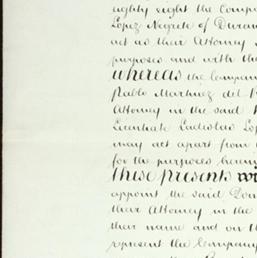 eighty eight the Comp
Lopez Negrete of Duran
act as their Attorney
purposes and with the
whereas the Compan
Pablo Martinez del
Attorney in the said
Licentiate Ladislao Lop
may act apart from
for the purposes herein
these presents wi
appoint the said Don
their Attorney in the
their name and on th
represent the Company